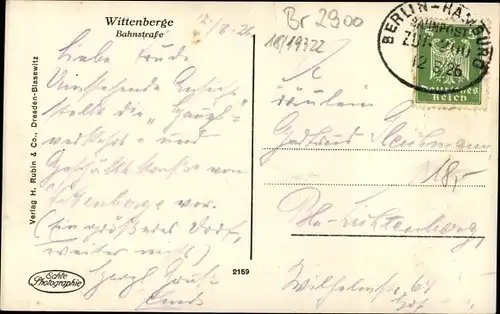 Wittenberge
Bahnstraße
12/8 26
Br 2900
18/19322
BERLIN-HAMBURG
BAHNPOST
ZUG
12.8.26
Deutsches
Reich
Liebe Trude
Umstehende Ansicht
stellt die „Haupt-
verkehrs- und
Geschäftsstraße von
Wittenberge vor.
(Ein größeres Dorf,
weiter nichts)
Herzl. Gruß
Fräulein
Gertrud
18,-
Bln-Lichtenberg,
Wilhelmstr. 64
Verlag H. Rubin & Co., Dresden-Blasewitz
Echte
Photographie
2159